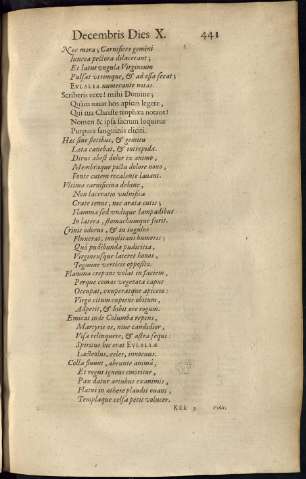 Decembris Dies X. 441
Nec mora; Carnifices gemini
Iuncea pectora dilacerant;
Et latus vngula Virgineum
Pulsat vtrimque, & ad ossa secat;
EVLALIA numerante notas.
Scriberis ecce! mihi Domine,
Quàm iuuat hos apices legere,
Qui tua Christe trophæa notant!
Nomen & ipsa sacrum loquitur
Purpura sanguinis eliciti.
Hæc sine fletibus, & gemitu
Læta canebat, & intrepida.
Dirus abest dolor ex animo,
Membraque picta cruore nouo,
Fonte cutem recalente lauant.
Vltima carnificina dehinc,
Non laceratio vulnifica
Crate tenus, nec arata cutis;
Flamma sed vndique lampadibus
In latera, stomachumque furit.
Crinis odorus, & in iugulos
Fluxerat, inuolitans humeris;
Quò pudibunda pudicitia,
Virgineusque lateret honos,
Tegmine verticis opposito.
Flamma crepans volat in faciem,
Perque comas vegetata caput
Occupat, exuperatque apicem:
Virgo citum cupiens obitum,
Adpetit, & bibit ore rogum.
Emicat inde Columba repens,
Martyris os, niue candidior,
Visa relinquere, & astra sequi:
Spiritus hic erat EVLALIÆ
Lacteolus, celer, innocuus.
Colla fluunt, abeunte anima;
Et rogus igneus emoritur,
Pax datur artubus exanimis,
Flatus in æthere plaudit ouans,
Templaque celsa petit volucer.
Kkk 3 Vidit